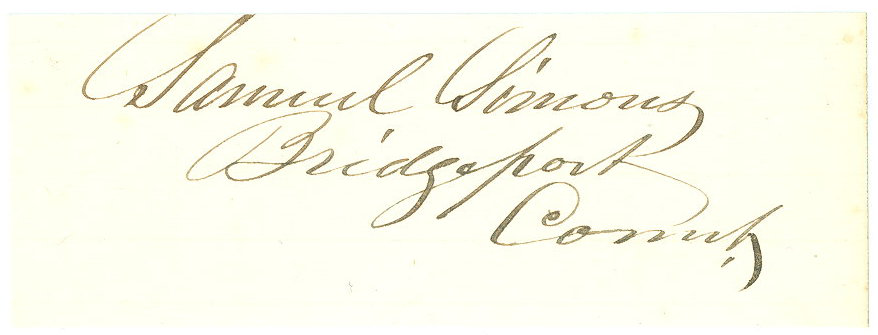 Samuel Simons
Bridgeport
Connt,